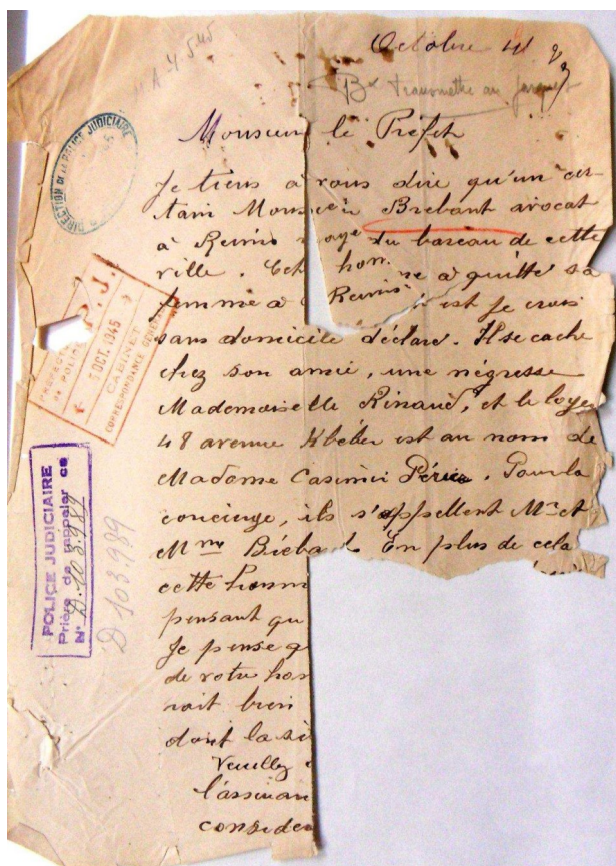 Octobre 41
Bx transmettre au parquet
Monsieur le Préfet
DIRECTION DE LA POLICE JUDICIAIRE
Je tiens à vous dire qu'un cer
tain Monsieur Brebant avocat
à Reims raye du bareau de cette
ville. Cet homme a quitté sa
femme à Reims est je crois
sans domicile déclaré. Il se cache
chez son amie, une négresse
Mademoiselle Rinaud, et le loyer
48 avenue Kléber est au nom de
Madame Casimir Périer. Pour la
concierge, ils s'appellent Mr et
Mme Biebard En plus de cela
cette homm
pensant qu
Je pense q
de votre hon
rait bien
dont la si
Veuillez
l'assuran
consider
P.J.
PREFECTURE DE POLICE
5 OCT. 1945
CABINET
CORRESPONDANCE GENERALE
POLICE JUDICIAIRE
Prière de rappeler ce
N° D.103.989
D 103.989